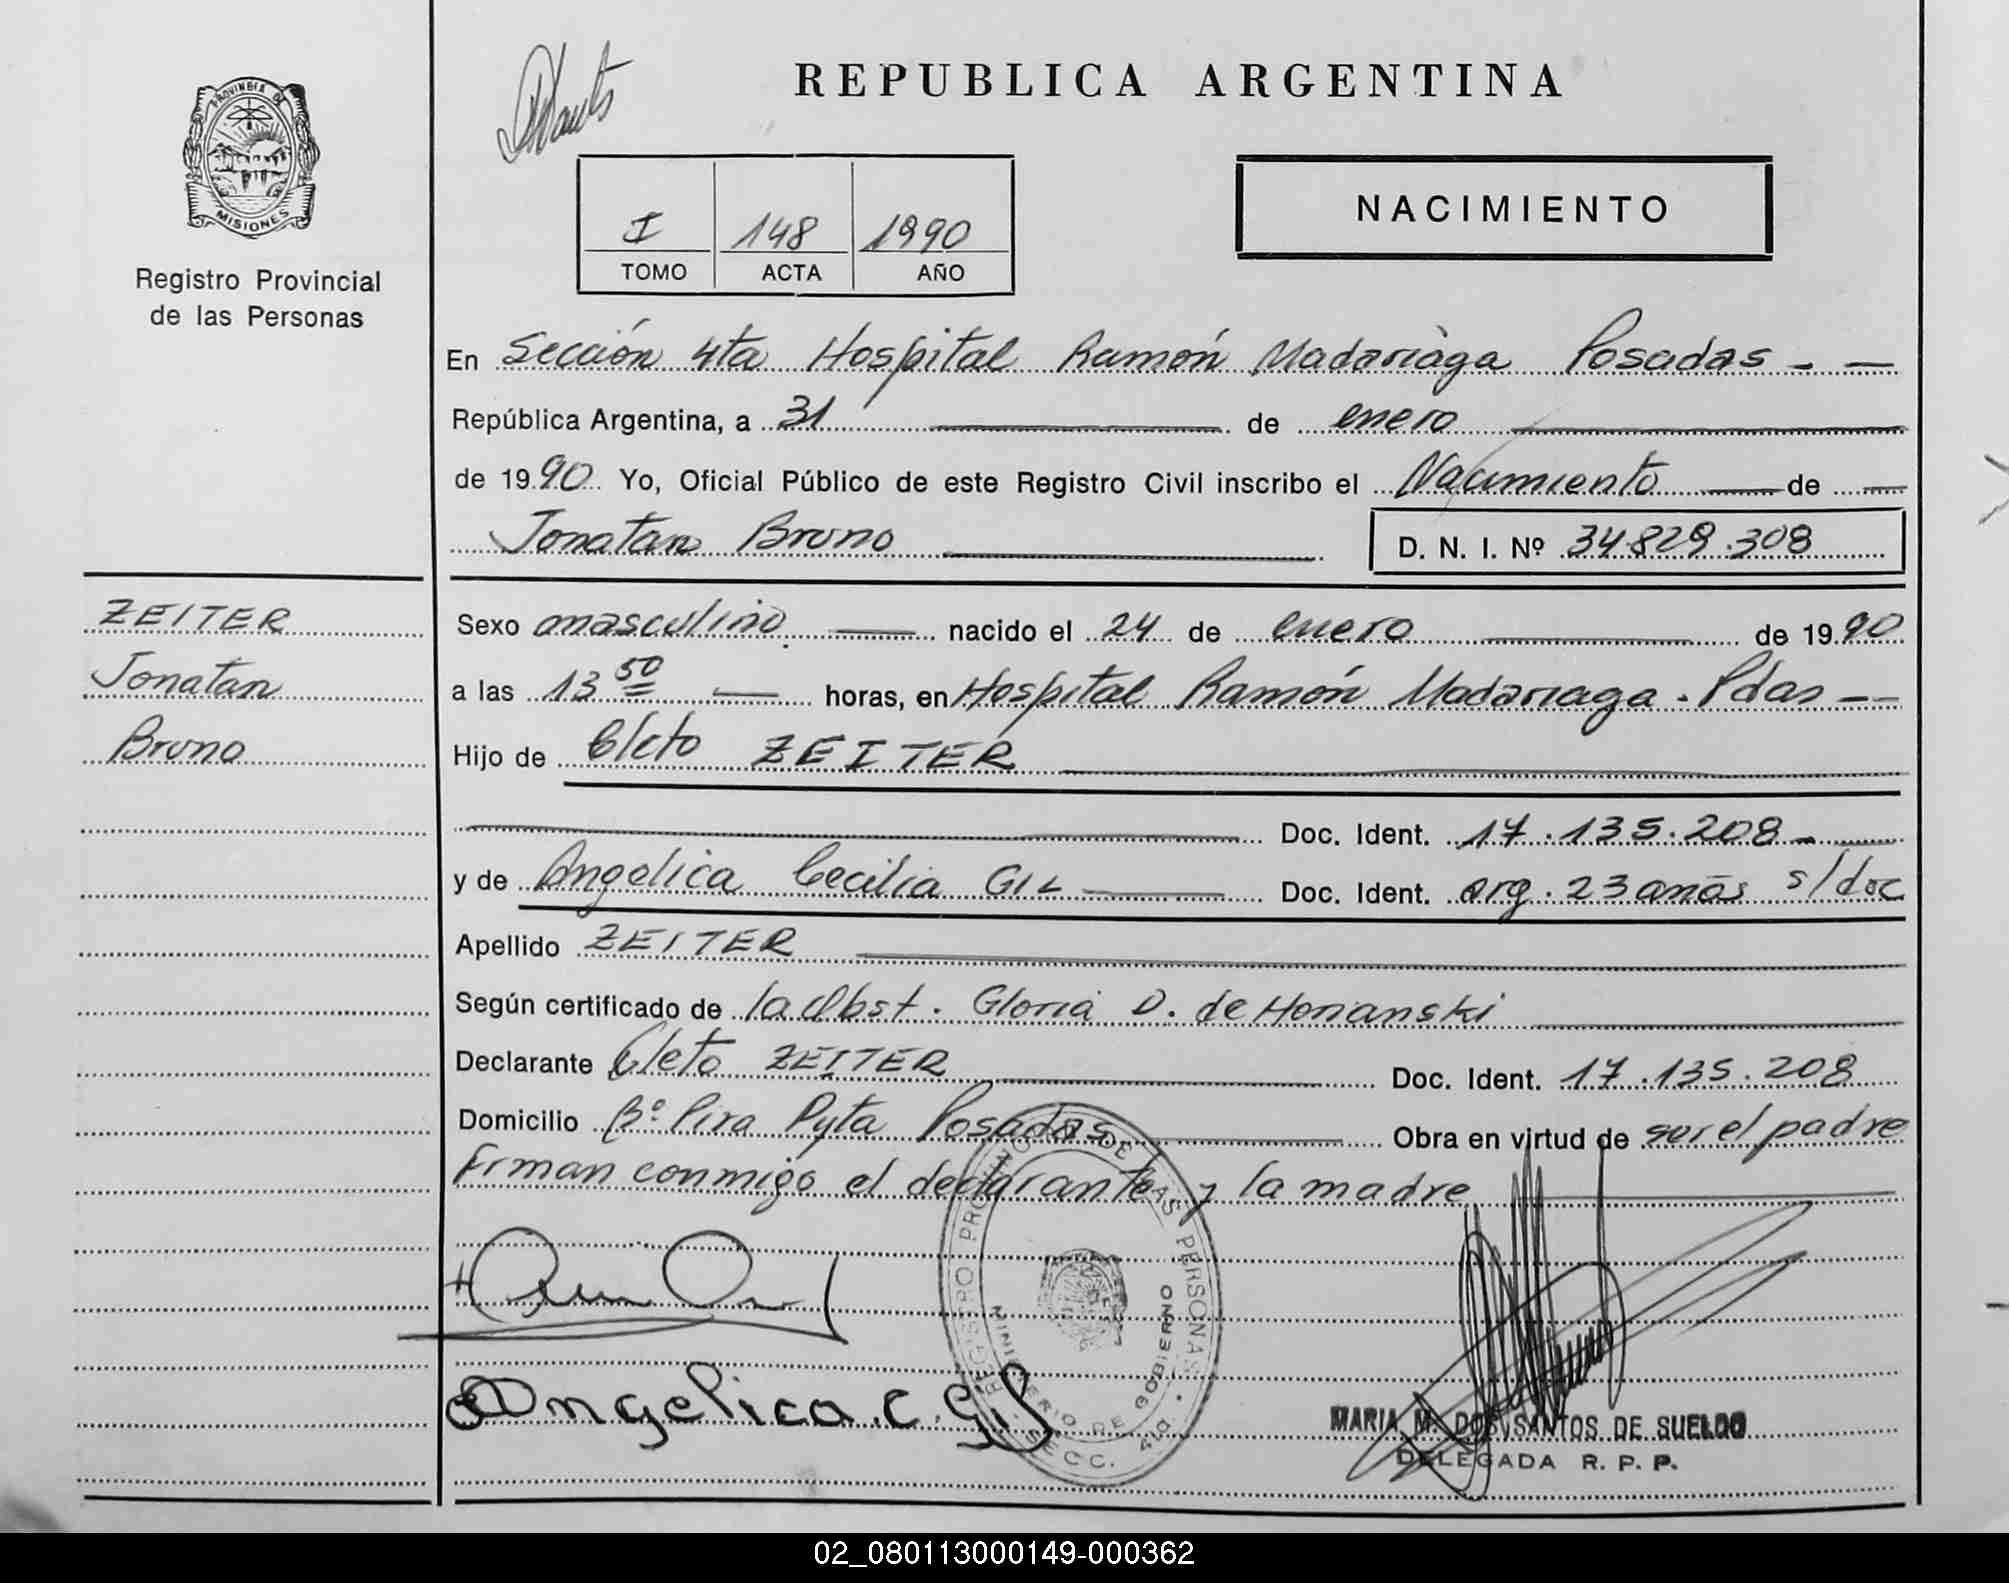 PROVINCIA DE
MISIONES
Registro Provincial
de las Personas
REPUBLICA ARGENTINA
I 148 1990
TOMO ACTA AÑO
NACIMIENTO
En Sección 4ta Hospital Ramón Madariaga Posadas - -
República Argentina, a 31 de enero
de 1990 Yo, Oficial Público de este Registro Civil inscribo el Nacimiento de
Jonatan Bruno D. N. I. Nº 34.829.308
ZEITER
Jonatan
Bruno
Sexo masculino nacido el 24 de enero de 1990
a las 13 50 horas, en Hospital Ramón Madariaga - Pdas - -
Hijo de Cleto ZEITER
Doc. Ident. 17.135.208 -
y de Angelica Cecilia GIL Doc. Ident. arg. 23 años s/doc
Apellido ZEITER
Según certificado de la Obst. Gloria D. de Honanski
Declarante Cleto ZEITER Doc. Ident. 17.135.208
Domicilio Bº Pira Pyta Posadas Obra en virtud de ser el padre
Firman conmigo el declarante y la madre
REGISTRO PROVINCIAL DE LAS PERSONAS
MINISTERIO DE GOBIERNO
SECC. 4ta
Angelica.C.Gil
MARIA M. DOS SANTOS DE SUELDO
DELEGADA R. P. P.
02_080113000149-000362